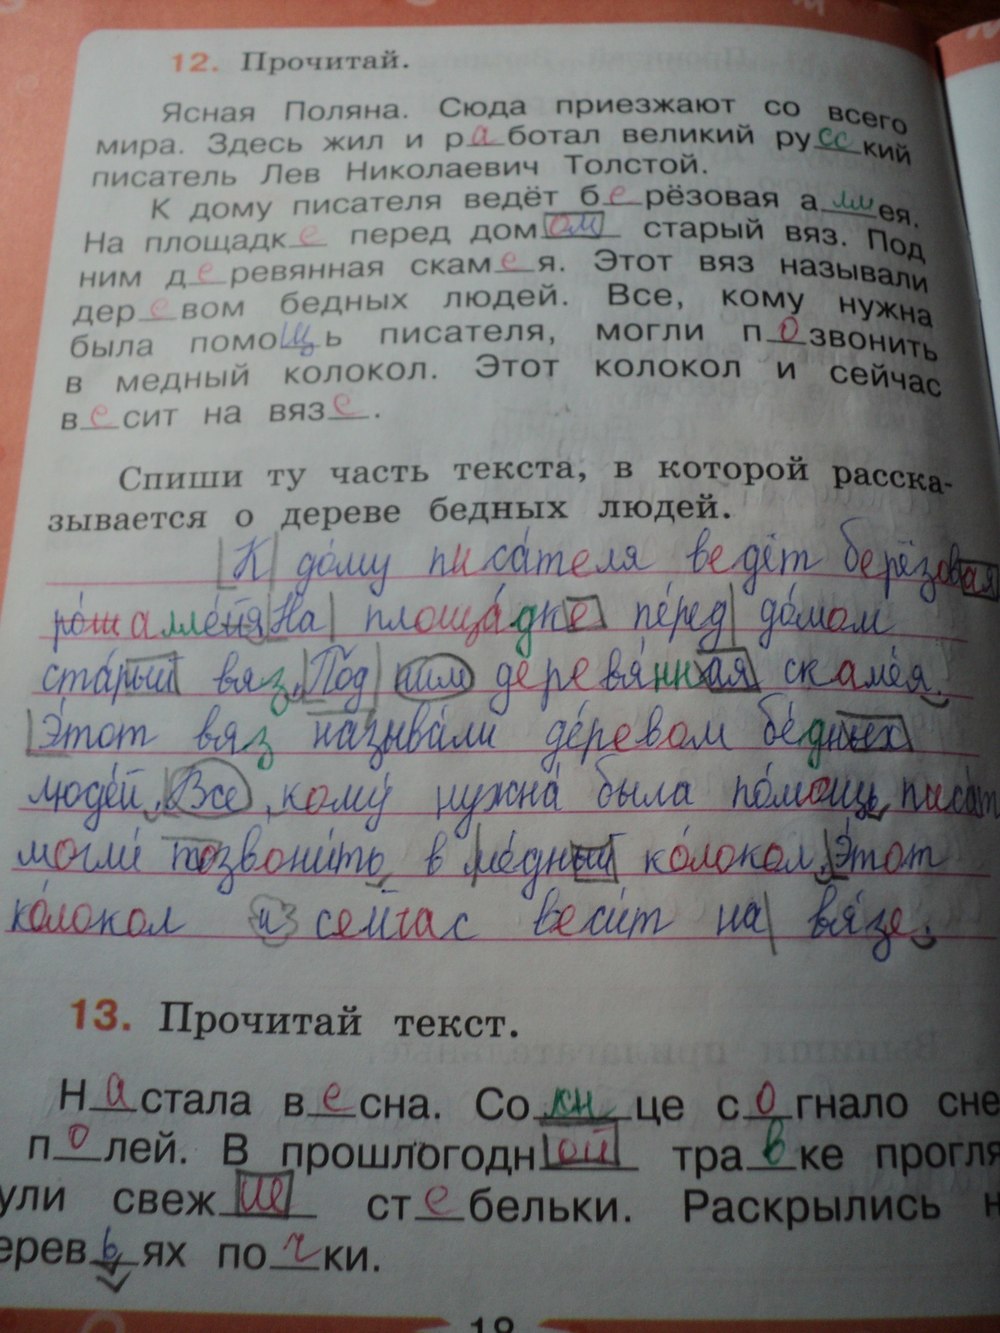 12. Прочитай.
Ясная Поляна. Сюда приезжают со всего
мира. Здесь жил и работал великий русский
писатель Лев Николаевич Толстой.
К дому писателя ведёт берёзовая аллея.
На площадке перед домом старый вяз. Под
ним деревянная скамея. Этот вяз называли
деревом бедных людей. Все, кому нужна
была помощь писателя, могли позвонить
в медный колокол. Этот колокол и сейчас
весит на вязе.
Спиши ту часть текста, в которой расска-
зывается о дереве бедных людей.
К дому писателя ведёт берёзовая
аллея На площадке перед домом
старый вяз. Под ним деревянная скамея.
Этот вяз называли деревом бедных
людей. Все, кому нужна была помощь писат
могли позвонить в медный колокол. Этот
колокол и сейчас весит на вязе.
13. Прочитай текст.
Настала весна. Со це согнало сне
полей. В прошлогодной травке прогля
ули свежие стебельки. Раскрылись н
еревьях почки.
19